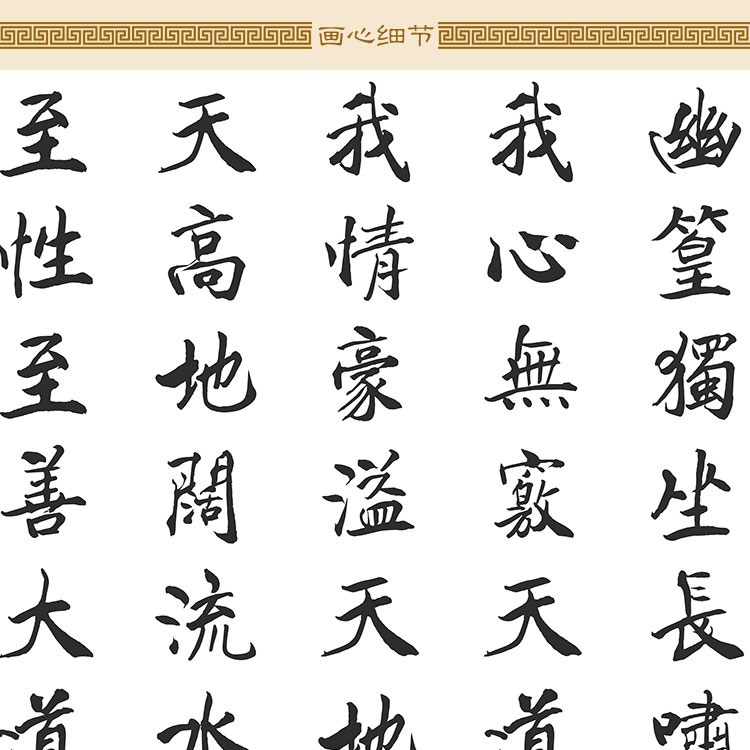 画心细节
幽篁獨坐長嘯
我心無竅天道
我情豪溢天地
天高地闊流水
至性至善大道